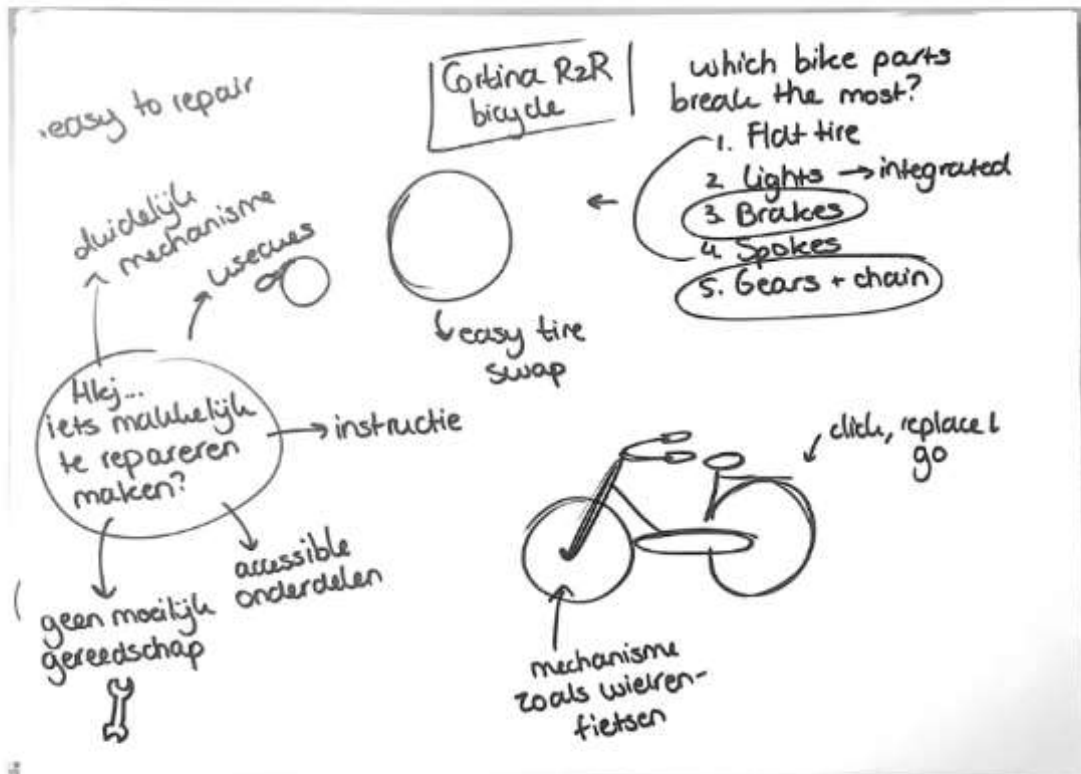 easy to repair
Cortina R2R
bicycle
which bike parts
break the most?
1. Flat tire
2. Lights → integrated
3. Brakes
4. Spokes
5. Gears + chain
duidelijk
mechanisme
usecues
easy tire
swap
Hkj...
iets makkelijk
te repareren
maken?
instructie
accessible
onderdelen
geen moeilijk
gereedschap
click, replace &
go
mechanisme
zoals wielren-
fietsen